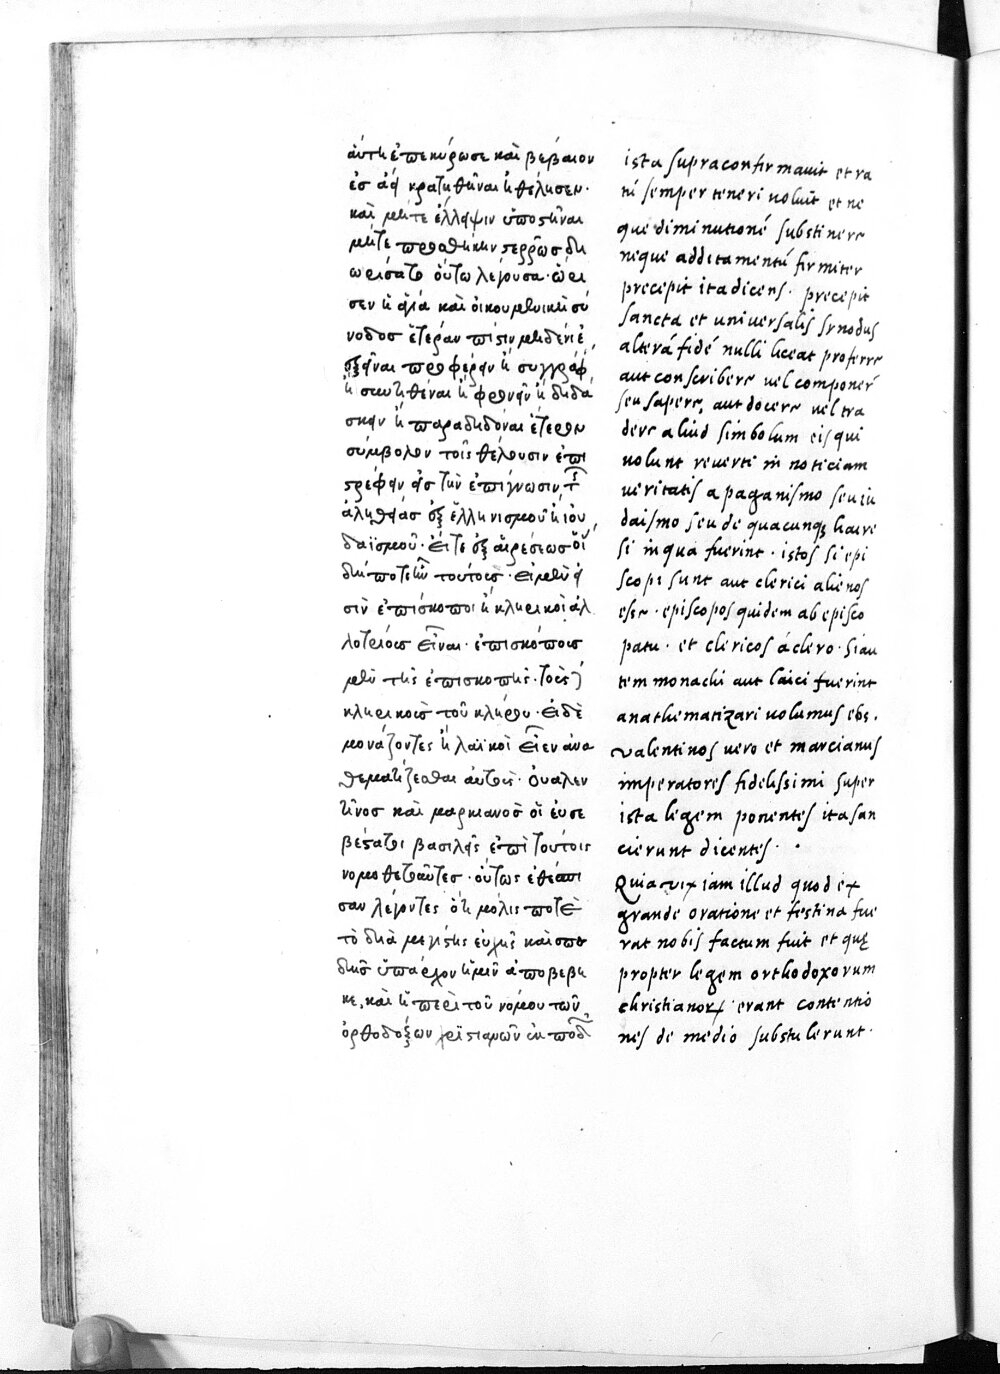 αὕτη ἐπεκύρωσε καὶ βέβαιον
ἐσ ἀεὶ κρατηθῆναι ἠθέλησεν·
καὶ μήτε ἔλλειψιν ὑποστῆναι
μήτε προσθήκην στερρῶσ δι
ωρίσατο οὕτω λέγουσα· ὥρι
σεν ἡ ἁγία καὶ οἰκουμενικὴ σύ
νοδοσ ἑτέραν πίστιν μηδενὶ ἐ
ξεῖναι προφέρειν ἢ συγγράφ
ἢ συντιθέναι ἢ φρονεῖν ἢ διδά
σκειν ἢ παραδιδόναι ἕτερον
σύμβολον τοῖς θέλουσιν ἐπι
στρέφειν εἰσ τὴν ἐπίγνωσιν τ
ἀληθείασ ἐξ ἑλληνισμοῦ ἢ ἰου
δαϊσμοῦ· εἴτε ἐξ αἱρέσεωσ οἵ
σὶν ἐπίσκοποι ἢ κληρικοὶ ἀλ
λοτρίουσ εἶναι· ἐπισκόπουσ
μὲν τῆς ἐπισκοπῆς· τοὺς
κληρικοὺσ τοῦ κλήρου· εἰ δὲ
μονάζοντες ἢ λαϊκοὶ εἶεν ἀνα
θεματίζεσθαι αὐτοὺς· ουαλεν
τῖνοσ καὶ μαρκιανοσ οἱ ευσε
βέστατοι βασιλεῖς ἐπὶ τούτοις
νομοθετοῦντεσ· οὕτως ἐθέσπι
σαν λέγοντες ὅτι μόλις ποτὲ
τὸ διὰ μεγίστης εὐχῆς καὶ σπο
δῆσ ὑπάρχον ἡμῖν ἀποβεβη
κε, καὶ ἡ περὶ τοῦ νόμου τῶν
ὀρθοδόξων χριστιανῶν ἐκ ποδ
ista supra confirmauit et ra
tū semper teneri uoluit et ne
que diminutionē substinere
neque additamentū firmiter
precepit ita dicens· precepit
sancta et uniuersalis synodus
alterā fidē nulli liceat proferre
aut conscribere uel componer̄
seu sapere, aut docere uel tra
dere aliud simbolum eis qui
uolunt reuerti in noticiam
ueritatis a paganismo seu iu
daismo seu de quacunqȝ haire
si in qua fuerint· istos si epi
scopi sunt aut clerici alienos
esse· episcopos quidem ab episco
patu· et clericos á clero· si au
tem monachi aut laici fuerint
anathematizari uolumus eos.
valentinos uero et marcianus
imperatores fidelissimi super
ista legem ponentes ita san
cierunt dicentes·
Quia vix iam illud quod ex
grande oratione et festina fue
rat nobis factum fuit et quę
propter legem orthodoxorum
christianorꝝ erant contentio
nes de medio substulerunt·